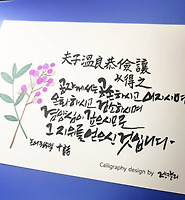 夫子溫良恭儉讓
以得之
공자께서는 공손하시고 어지시며
온화하시고 검소하시며
겸양심이 깊으시므로
그 지위를 얻으신 것입니다.
Calligraphy design by